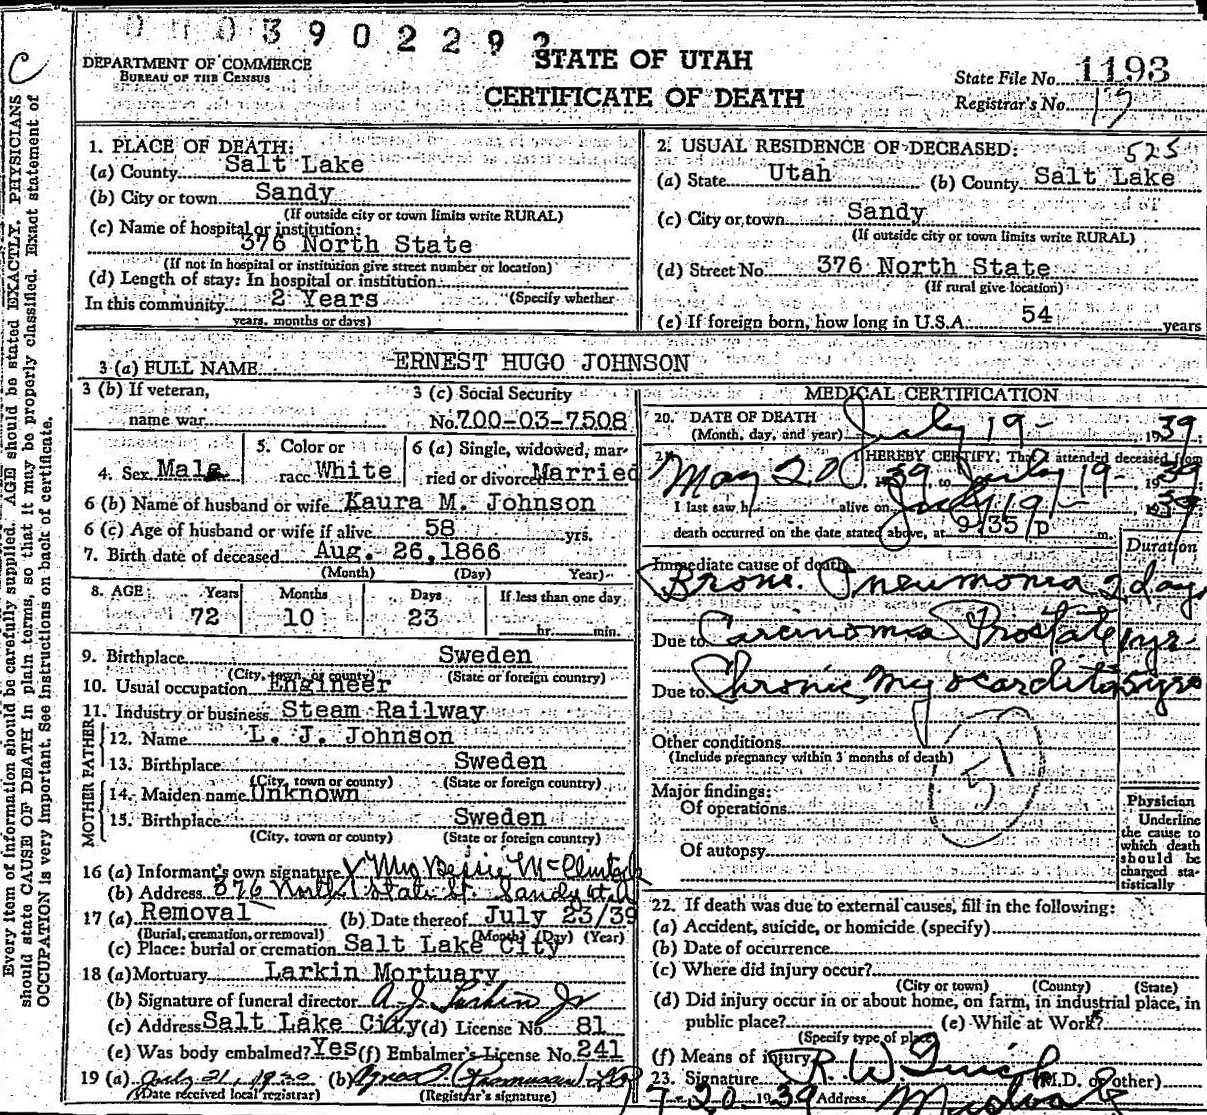 C
DEPARTMENT OF COMMERCE
BUREAU OF THE CENSUS
STATE OF UTAH
CERTIFICATE OF DEATH
State File No. 1193
Registrar's No. 17
Every item of information should be carefully supplied. AGE should be stated EXACTLY. PHYSICIANS
should state CAUSE OF DEATH in plain terms, so that it may be properly classified. Exact statement of
OCCUPATION is very important. See instructions on back of certificate.
1. PLACE OF DEATH:
(a) County Salt Lake
(b) City or town Sandy
(If outside city or town limits write RURAL)
(c) Name of hospital or institution:
376 North State
(If not in hospital or institution give street number or location)
(d) Length of stay: In hospital or institution
In this community 2 Years (Specify whether
years, months or days)
2. USUAL RESIDENCE OF DECEASED: 525
(a) State Utah (b) County Salt Lake
(c) City or town Sandy
(If outside city or town limits write RURAL)
(d) Street No. 376 North State
(If rural give location)
(e) If foreign born, how long in U.S.A. 54 years
3 (a) FULL NAME ERNEST HUGO JOHNSON
3 (b) If veteran,
name war
3 (c) Social Security
No. 700-03-7508
4. Sex Male
5. Color or
race White
6 (a) Single, widowed, mar-
ried or divorced Married
6 (b) Name of husband or wife Kaura M. Johnson
6 (c) Age of husband or wife if alive 58 yrs.
7. Birth date of deceased Aug. 26,1866
(Month) (Day) Year)
8. AGE: Years Months Days If less than one day
72 10 23 hr. min.
9. Birthplace Sweden
(City, town, or county) (State or foreign country)
10. Usual occupation Engineer
11. Industry or business Steam Railway
FATHER
12. Name L. J. Johnson
13. Birthplace Sweden
(City, town or county) (State or foreign country)
MOTHER
14. Maiden name Unknown
15. Birthplace Sweden
(City, town or county) (State or foreign country)
16 (a) Informant's own signature X Mrs Bessie McClintock
(b) Address 376 North State St. Sandy Ut.
17 (a) Removal (b) Date thereof July 23/39
(Burial, cremation, or removal) (Month) (Day) (Year)
(c) Place: burial or cremation Salt Lake City
18 (a) Mortuary Larkin Mortuary
(b) Signature of funeral director A. J. Larkin Jr
(c) Address Salt Lake City (d) License No. 81
(e) Was body embalmed? Yes (f) Embalmer's License No. 241
19 (a) July 21, 1939 (b)
(Date received local registrar) (Registrar's signature)
MEDICAL CERTIFICATION
20. DATE OF DEATH
(Month, day, and year) July 19 - , 1939
21. I HEREBY CERTIFY, That I attended deceased from
May 20, 1939, to July 19 -, 1939
I last saw h alive on July 19 -, 1939
death occurred on the date stated above, at 9/35/p m.
Immediate cause of death Duration
Bronc. Pneumonia 2 days
Due to Carcinoma Prostate 1 yr
Due to Chronic Myocarditis 5 yrs
Other conditions
(Include pregnancy within 3 months of death)
51
Major findings:
Of operations
Of autopsy
Physician
Underline
the cause to
which death
should be
charged sta-
tistically
22. If death was due to external causes, fill in the following:
(a) Accident, suicide, or homicide (specify)
(b) Date of occurrence
(c) Where did injury occur?
(City or town) (County) (State)
(d) Did injury occur in or about home, on farm, in industrial place, in
public place? (e) While at Work?
(Specify type of place)
(f) Means of injury
23. Signature R W (M.D. or other)
7-20 1939 Address